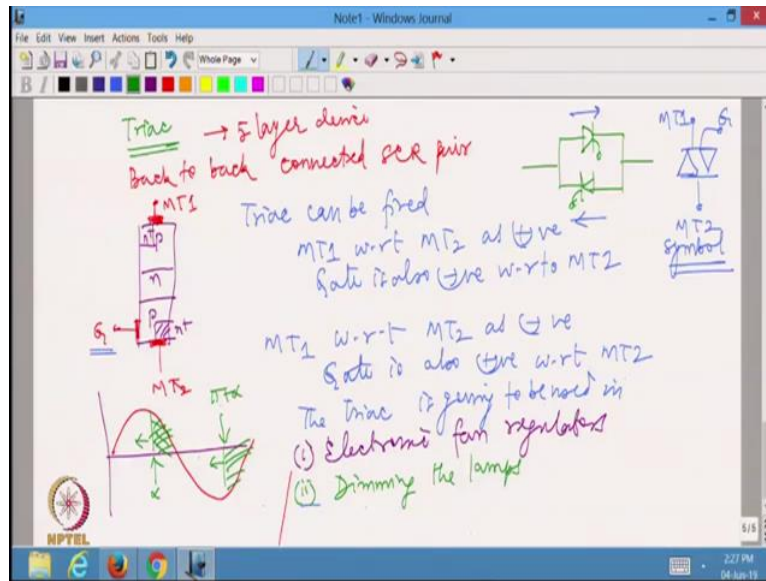 Note1 - Windows Journal
File Edit View Insert Actions Tools Help
Whole Page
B I
Triac → 5 layer device
Back to back connected SCR pair
MT1
n p
n
p n+
G
MT2
α
π+α
MT1 G
MT2
Symbol
Triac can be fired
MT1 w.r.t MT2 as +ve
Gate is also +ve w.r.to MT2
MT1 w.r.t MT2 as -ve
Gate is also -ve w.r.t MT2
The Triac is going to be used in
(i) Electronic fan regulators
(ii) Dimming the lamps
NPTEL
5/5
2:27 PM
04-Jun-19